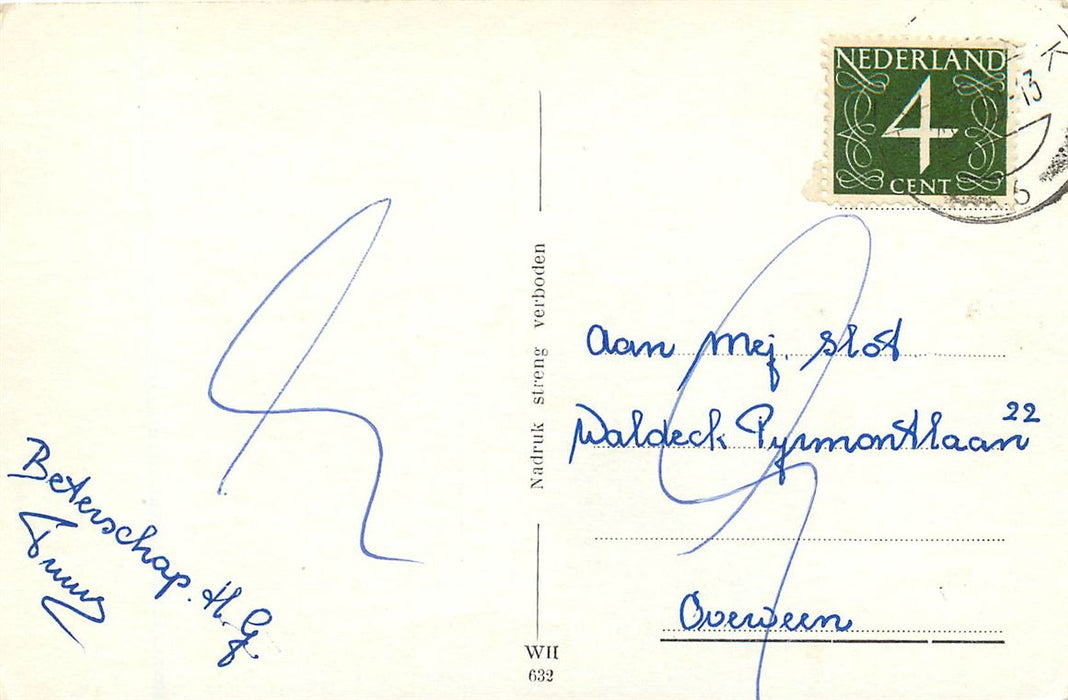 NEDERLAND
4
CENT
-13
6
Nadruk streng verboden
Aan Mej. Slot
Waldeck Pyrmontlaan 22
Overveen
Beterschap. H. G.
WH
632